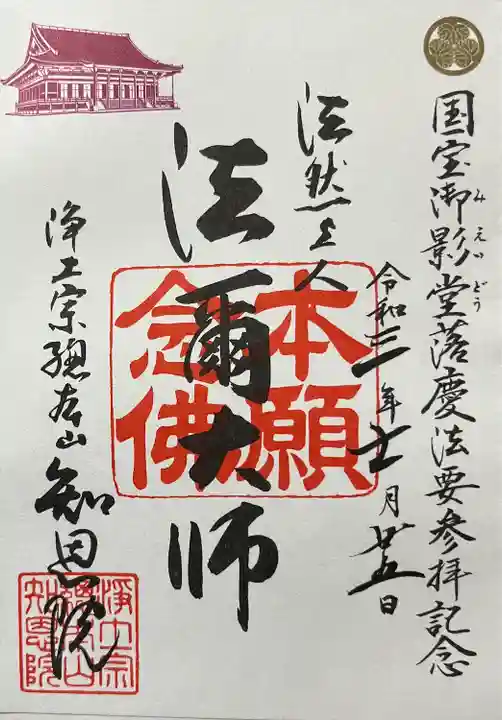 国宝御影堂落慶法要参拝記念
みえいどう
令和三年十一月廿五日
法然上人
法爾大師
本願
念佛
浄土宗総本山
知恩院
浄土宗
総本山
知恩院